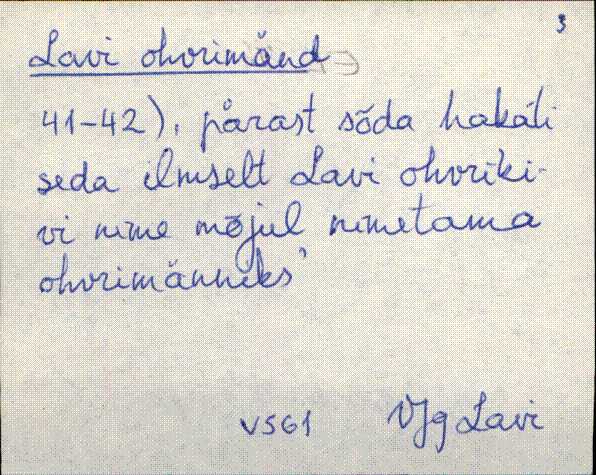 3
Lavi ohvrimänd
41-42), pärast sõda hakati
seda ilmselt Lavi ohvriki-
vi nime mõjul nimetama
ohvrimänniks
VSG1 VJg Lavi